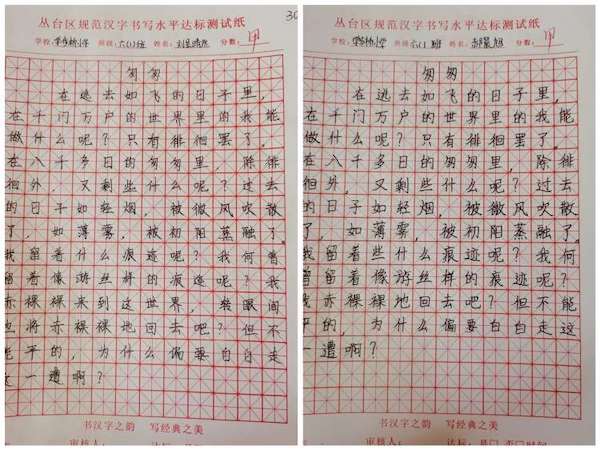 丛台区规范汉字书写水平达标测试纸
学校: 小学 班级: 六(1)班 姓名: 分数: 甲
匆匆
在逃去如飞的日子里,
在千门万户的世界里的我能
做什么呢?只有徘徊罢了,
在八千多日的匆匆里,除徘
徊外,又剩些什么呢?过去
的日子如轻烟,被微风吹散
了,如薄雾,被初阳蒸融了。
我留着什么痕迹呢?我何曾
留着像游丝样的痕迹呢?我
赤裸裸来到这世界,转眼间
也将赤裸裸地回去吧?但不
能平的,为什么偏要白白走
这一遭啊?
书汉字之韵 写经典之美
审核人: 达标:
丛台区规范汉字书写水平达标测试纸
学校: 小学 班级: 六(1)班 姓名: 分数: 甲
匆匆
在逃去如飞的日子里,
在千门万户的世界里的我能
做什么呢?只有徘徊罢了。
在八千多日的匆匆里,除徘
徊外,又剩些什么呢?过去
的日子如轻烟,被微风吹散
了,如薄雾,被初阳蒸融了。
我留着些什么痕迹呢?我何
曾留着像游丝样的痕迹呢?
我赤裸裸地回去吧?但不能
平的,为什么偏要白白走这
一遭啊?
书汉字之韵 写经典之美
审核人: 达标: 时间